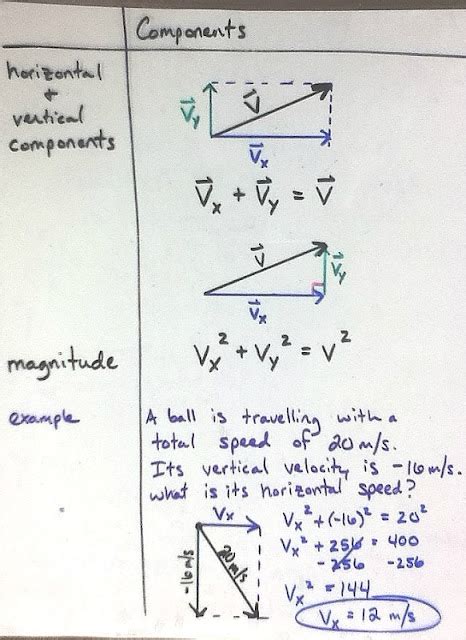 Components
horizontal
+
vertical
components
V⃗y
V⃗
V⃗x
V⃗x + V⃗y = V⃗
V⃗
V⃗y
V⃗x
magnitude
Vx² + Vy² = V²
example
A ball is travelling with a
total speed of 20 m/s.
Its vertical velocity is -16 m/s.
what is its horizontal speed?
Vx
-16 m/s
20 m/s
Vx² + (-16)² = 20²
Vx² + 256 = 400
- 256 -256
Vx² = 144
Vx = 12 m/s